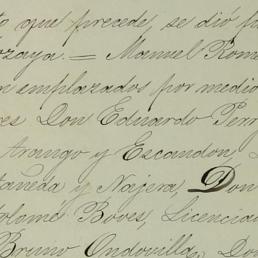 to que precede, se dió fe
ozaya. = Manuel Rome
n emplazados por medio
es Don Eduardo Perr
Arango y Escandon,
tañeda y Najera, Don
tolomé Boves, Licencia
Bruno Ondovilla, Do